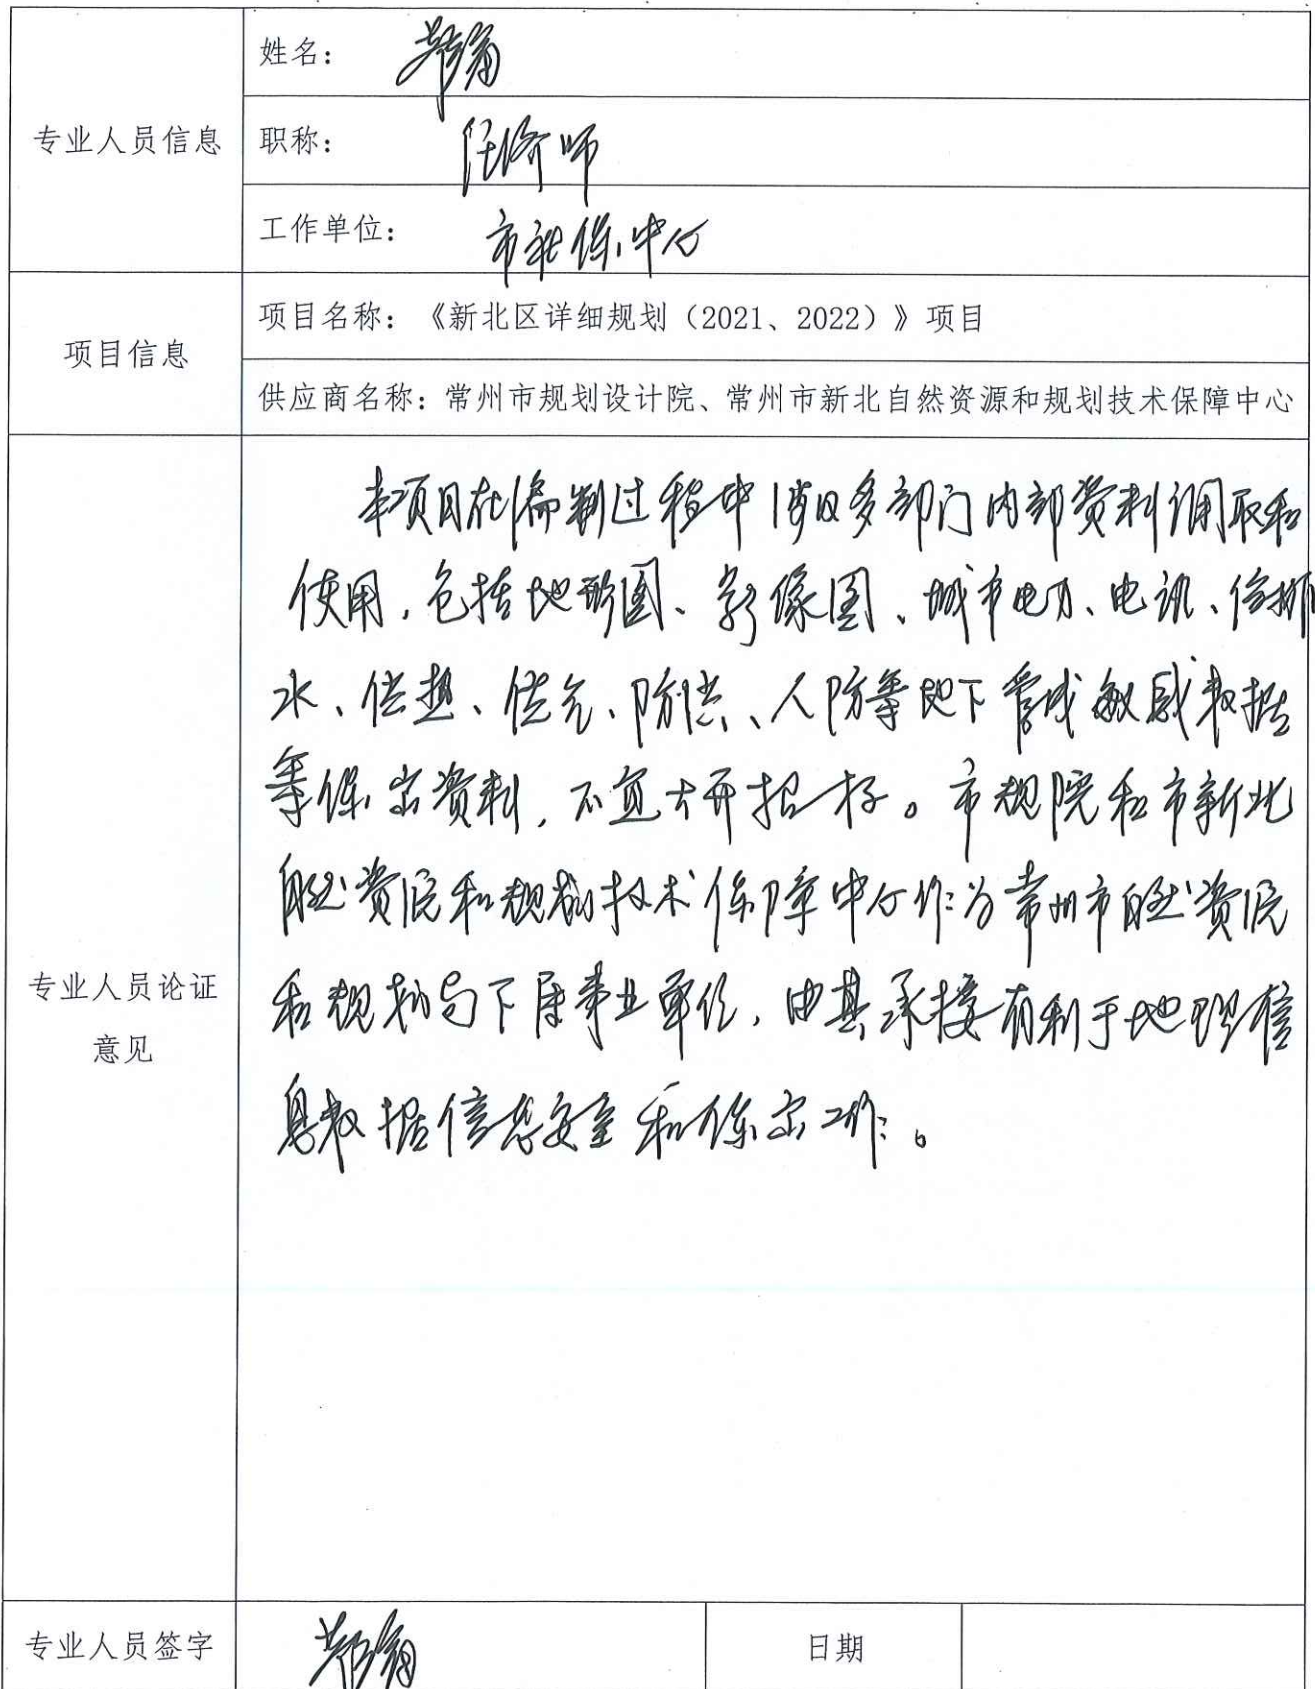 专业人员信息
姓名：
职称： 经济师
工作单位： 市社保中心
项目信息
项目名称：《新北区详细规划（2021、2022）》项目
供应商名称：常州市规划设计院、常州市新北自然资源和规划技术保障中心
专业人员论证
意见
本项目在编制过程中涉及多部门内部资料调取和
使用，包括地形图、影像图、城市电力、电讯、给排
水、供热、供气、防洪、人防等地下管线敏感数据
等保密资料，不宜公开招标。市规院和市新北
自然资源和规划技术保障中心作为常州市自然资源
和规划局下属事业单位，由其承接有利于地理信
息数据信息安全和保密工作。
专业人员签字
日期